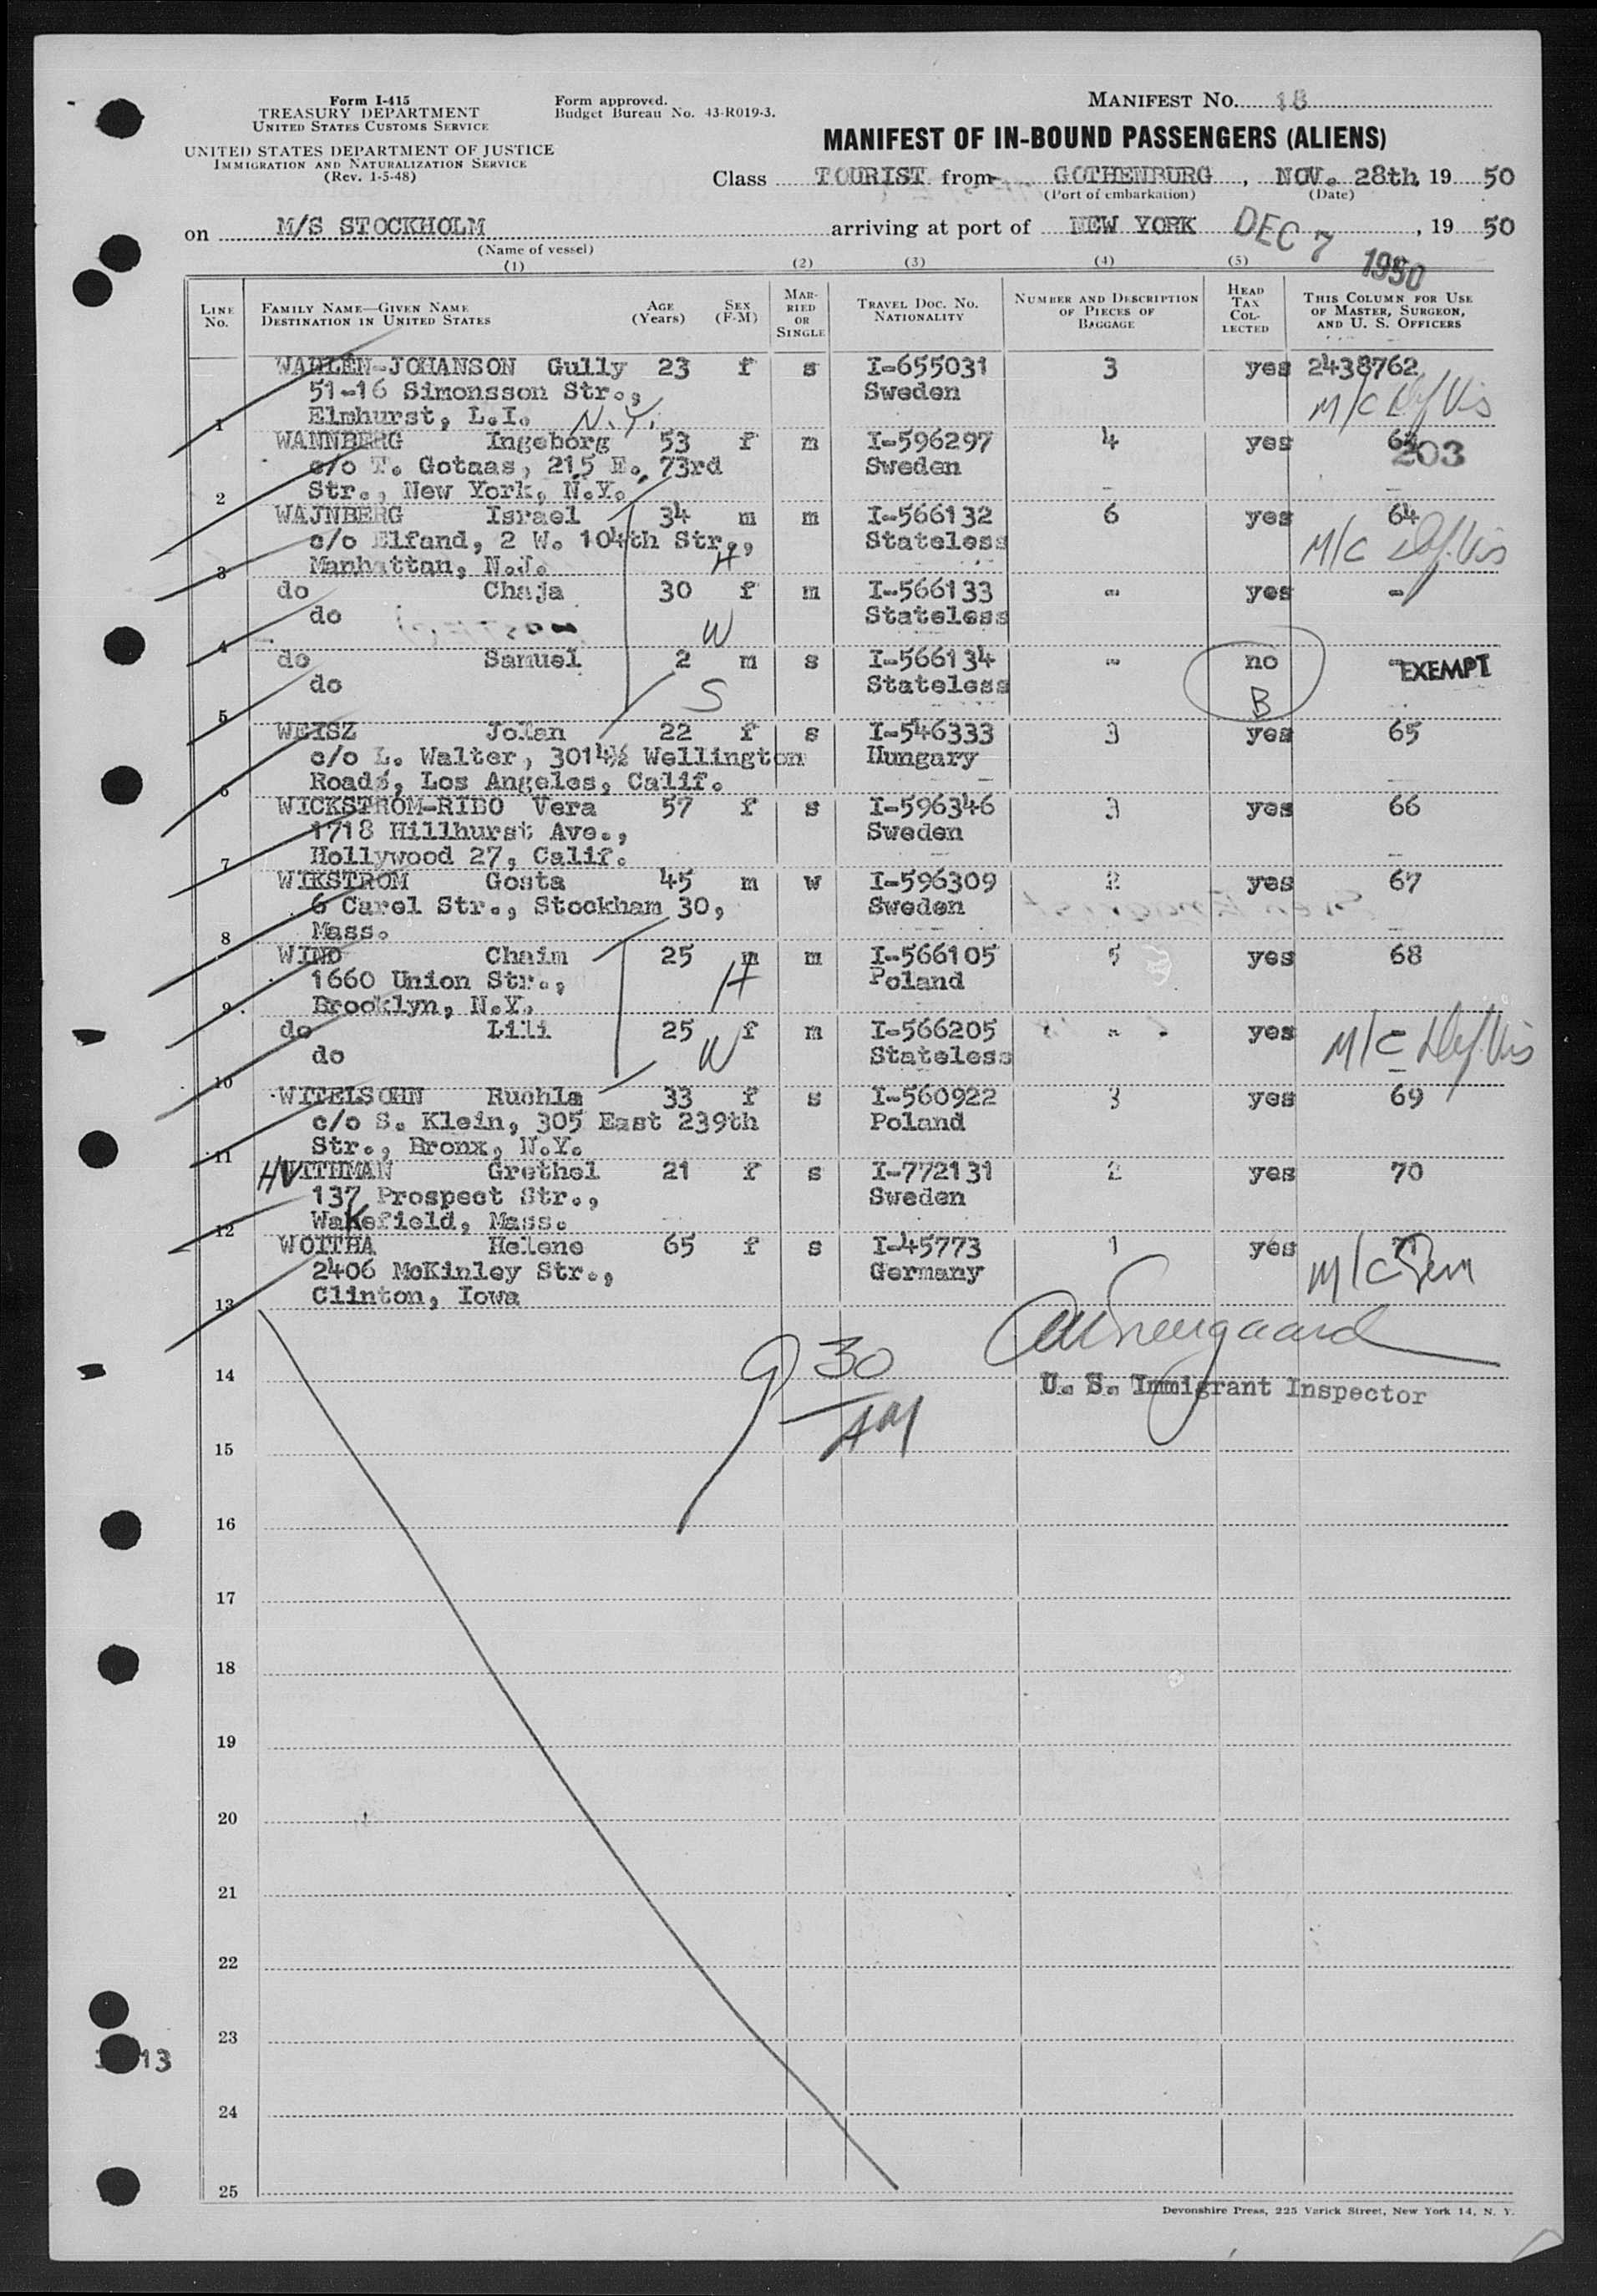 Form I-415
TREASURY DEPARTMENT
UNITED STATES CUSTOMS SERVICE
UNITED STATES DEPARTMENT OF JUSTICE
IMMIGRATION AND NATURALIZATION SERVICE
(Rev. 1-5-48)
Form approved.
Budget Bureau No. 43-R019-3.
MANIFEST NO. 18
MANIFEST OF IN-BOUND PASSENGERS (ALIENS)
Class TOURIST from GOTHENBURG, NOV. 28th, 19 50
(Port of embarkation) (Date)
on M/S STOCKHOLM arriving at port of NEW YORK DEC 7 1950, 19 50
(Name of vessel)
(1) (2) (3) (4) (5)
LINE No. FAMILY NAME—GIVEN NAME DESTINATION IN UNITED STATES AGE (Years) SEX (F-M) MARRIED OR SINGLE TRAVEL DOC. NO. NATIONALITY NUMBER AND DESCRIPTION OF PIECES OF BAGGAGE HEAD TAX COLLECTED THIS COLUMN FOR USE OF MASTER, SURGEON, AND U. S. OFFICERS
WAHLEN-JOHANSON Gully 23 f s I-655031 3 yes 2438762
51-16 Simonsson Str., Sweden M/C Def Vis
1 Elmhurst, L.I. N.Y.
WANNBERG Ingeborg 53 f m I-596297 4 yes 63
c/o T. Gotaas, 215 E. 73rd Sweden 203
2 Str., New York, N.Y.
WAJNBERG Israel 34 m m I-566132 6 yes 64
c/o Elfand, 2 W. 104th Str., Stateless M/C Def. Vis
3 Manhattan, N.J. H
do Chaja 30 f m I-566133 - yes -
4 do W Stateless
do Samuel 2 m s I-566134 - no - EXEMPT
5 do S Stateless B
WEISZ Jolan 22 f s I-546333 3 yes 65
c/o L. Walter, 3014½ Wellington Hungary
6 Roads, Los Angeles, Calif.
WICKSTROM-RIBO Vera 57 f s I-596346 3 yes 66
1718 Hillhurst Ave., Sweden
7 Hollywood 27, Calif.
WIKSTROM Gosta 45 m w I-596309 2 yes 67
6 Carel Str., Stockham 30, Sweden
8 Mass.
WINO Chaim 25 m m I-566105 5 yes 68
1660 Union Str., H Poland
9 Brooklyn, N.Y.
do Lili 25 f m I-566205 - yes M/C Def. Vis
10 do W Stateless
WITELSOHN Ruchla 33 f s I-560922 3 yes 69
c/o S. Klein, 305 East 239th Poland
11 Str., Bronx, N.Y.
HVITHMAN Grethel 21 f s I-772131 2 yes 70
137 Prospect Str., Sweden
12 Wakefield, Mass.
WOITHA Helene 65 f s I-45773 1 yes 71
2406 McKinley Str., Germany M/C
13 Clinton, Iowa
14 9 30
U. S. Immigrant Inspector
AM
15
16
17
18
19
20
21
22
23
13
24
25
Devonshire Press, 225 Varick Street, New York 14, N. Y.